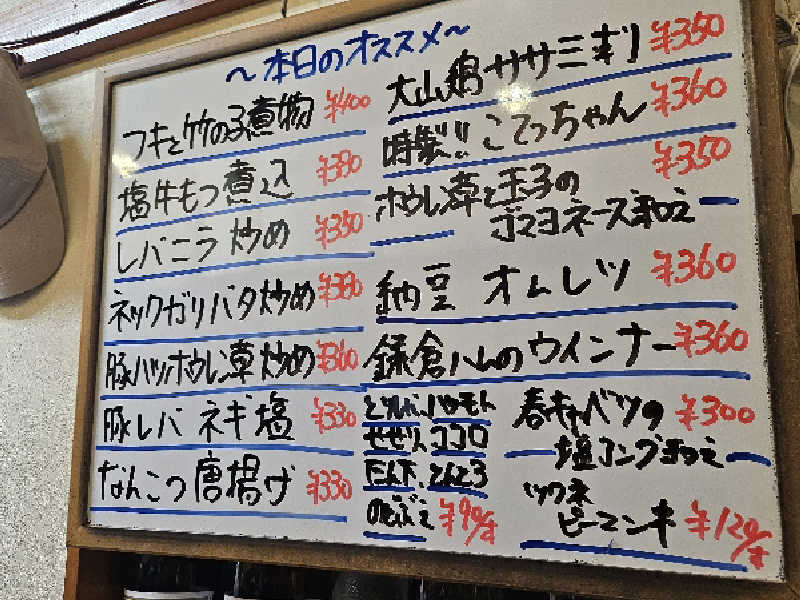 ～本日のオススメ～
フキと竹の子煮物 ¥400
塩牛もつ煮込 ¥390
レバニラ炒め ¥350
ネックガリバタ炒め ¥390
豚ハツホウレン草炒め ¥360
豚レバネギ塩 ¥330
なんこつ唐揚げ ¥330
大山鶏ササミ刺 ¥350
特製!!こてっちゃん ¥360
ホウレン草と玉子の ¥350
ゴマヨネーズ和え
納豆オムレツ ¥360
鎌倉ハムのウインナー ¥360
とりレバ、ハツモト
せせり、ココロ
タン下、とんとろ
のどぶえ ¥90/本
春キャベツの ¥300
塩コンブ和え
ツクネ
ピーマン串 ¥120/本